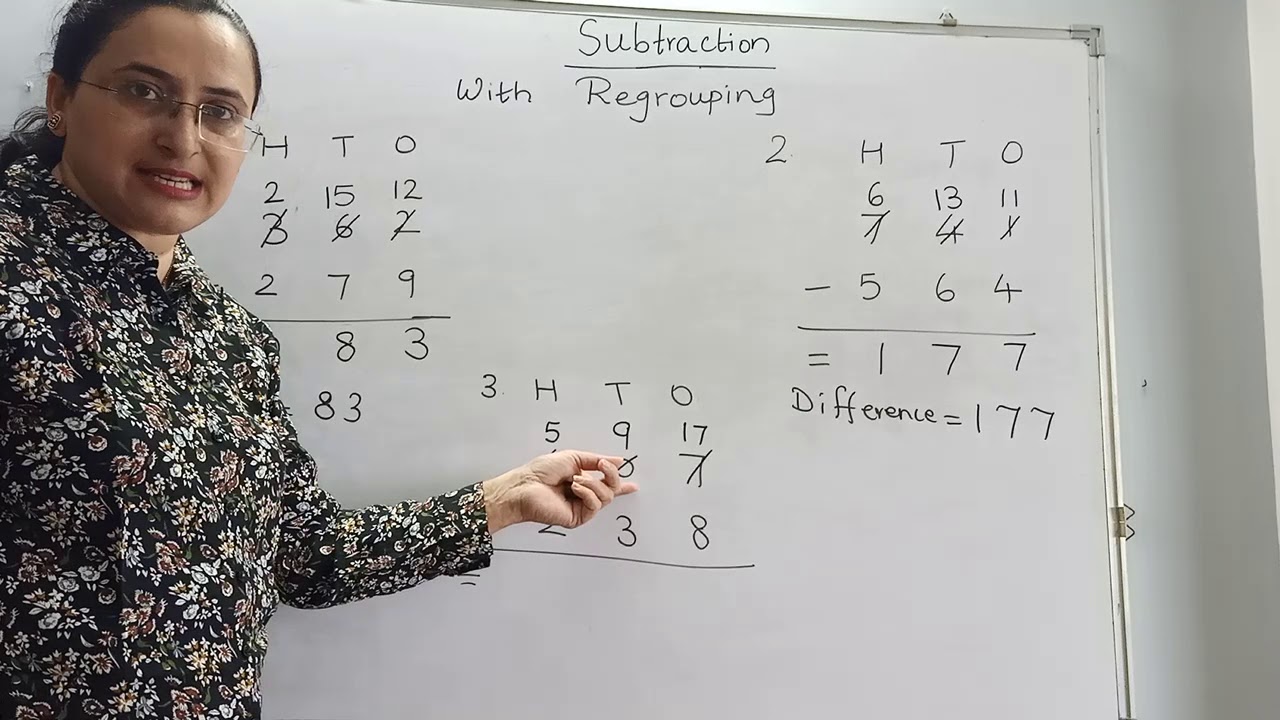 Subtraction
With Regrouping
H T O
2 15 12
3 6 2
2 7 9
8 3
83
2. H T O
6 13 11
7 4 1
- 5 6 4
= 1 7 7
Difference = 177
3. H T O
5 9 17
0 7
2 3 8
=